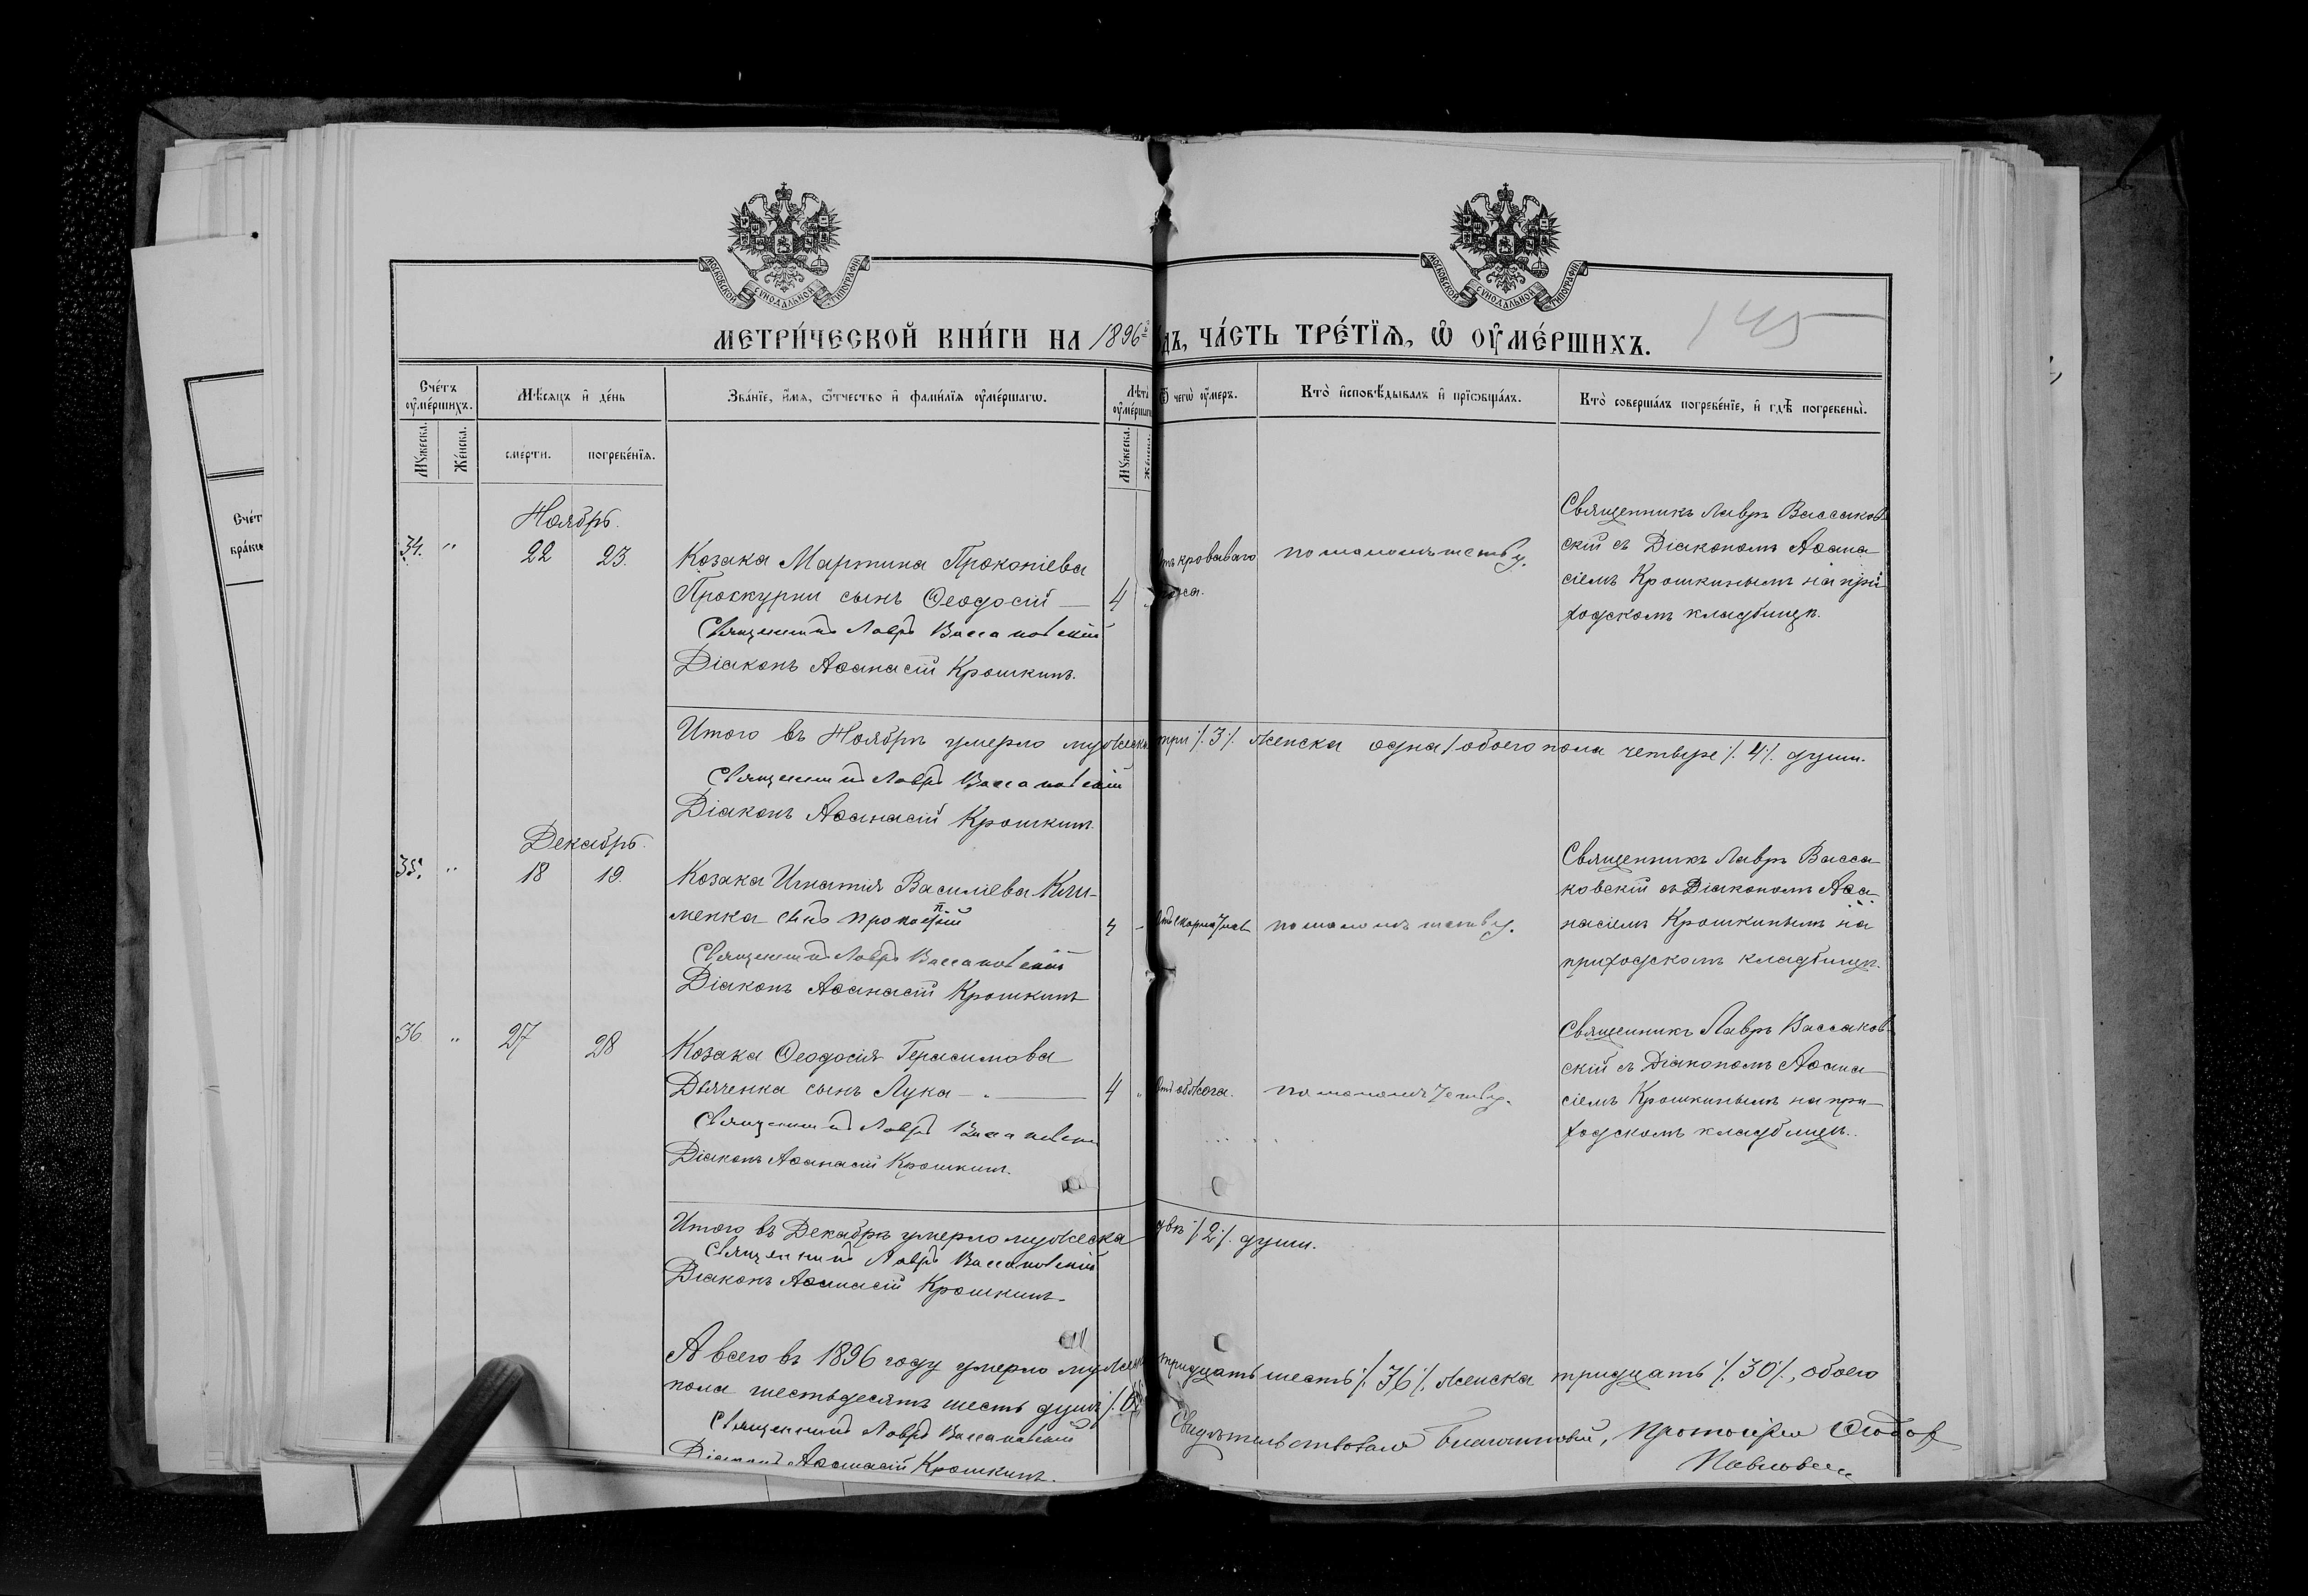 МОСКОВСКОЙ СУНОДАЛЬНОЙ ТИПОГРАФІИ
МОСКОВСКОЙ СУНОДАЛЬНОЙ ТИПОГРАФІИ
МЕТРИ́ЧЕСКОЙ КНИ́ГИ НА 1896 дъ, ЧА́СТЬ ТРЕ́ТЇѦ, Ѡ҆ ОУ҆МЕ́РШИХЪ.
145
Сче́тъ оу҆ме́ршихъ.
Мѣ́сѧцъ и҆ де́нь
Зва́нїе, и҆́мѧ, ѻ҆́тчество и҆ фами́лїѧ оу҆ме́ршагѡ.
Лѣта̀ оу҆ме́ршагѡ
Ѿ чегѡ̀ оу҆́меръ.
Кто̀ и҆сповѣ́дывалъ и҆ прїѡбща́лъ.
Кто̀ соверша́лъ погребе́нїе, и҆ гдѣ̀ погребены̀.
Мꙋ́жеска. Же́нска.
сме́рти. погребе́нїѧ.
Мꙋ́жеска. Же́нска.
Сче́т
бра́кѡ
Ноябрь.
34. " 22 23.
Козака Мартина Прокопіева
Проскурни сынъ Ѳеодосій — 4
Священникъ Лавръ Вассаковскій
Діаконъ Аѳанасій Крошкинъ.
Отъ кроваваго
поноса.
по малолѣтству.
Священникъ Лавръ Вассаков-
скій съ Діакономъ Аѳана-
сіемъ Крошкинымъ на при-
ходскомъ кладбищѣ.
Итого въ Ноябрѣ умерло мужеска три /.3/. женска одна / обоего пола четыре /.4/. души.
Священникъ Лавръ Вассаковскій
Діаконъ Аѳанасій Крошкинъ.
Декабрь.
35. " 18 19.
Козака Игнатія Василіева Кли-
менка сынъ Прокопій 4
Священникъ Лавръ Вассаковскій
Діаконъ Аѳанасій Крошкинъ
по малолѣтству.
Священникъ Лавръ Васса-
ковскій съ Діакономъ Аѳа-
насіемъ Крошкинымъ на
приходскомъ кладбищѣ.
36 " 27 28
Козака Ѳеодосія Герасимова
Дяченка сынъ Лука — 4 "
Священникъ Лавръ Вассаковскій
Діаконъ Аѳанасій Крошкинъ.
Отъ обжога.
по малолѣтству.
Священникъ Лавръ Вассаков-
скій съ Діакономъ Аѳана-
сіемъ Крошкинымъ на при-
ходскомъ кладбищѣ.
Итого въ Декабрѣ умерло мужеска двѣ /.2/. души.
Священникъ Лавръ Вассаковскій
Діаконъ Аѳанасій Крошкинъ.
А всего въ 1896 году умерло мужеска тридцать шесть /.36/. женска тридцать /.30/., обоего
пола шестьдесятъ шесть душъ /.66
Священникъ Лавръ Вассаковскій
Діаконъ Аѳанасій Крошкинъ.
Свидѣтельствовалъ Благочинный, Протоіерей Ѳеодоръ